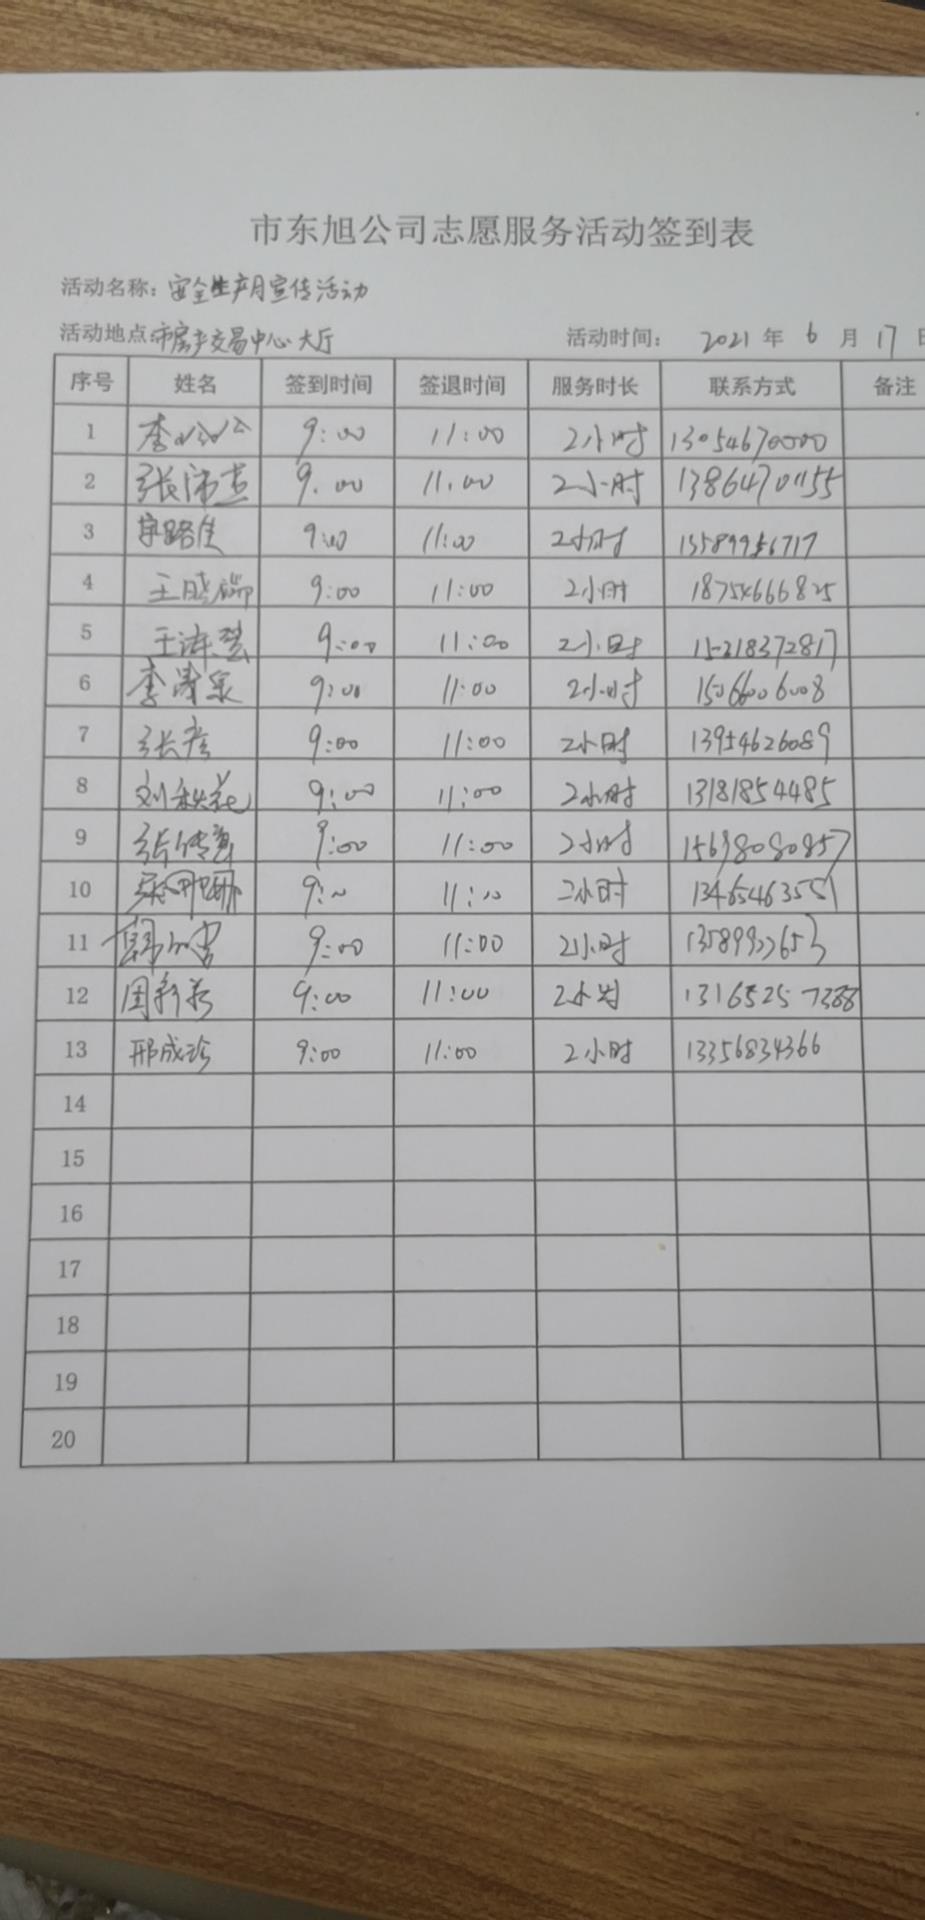 市东旭公司志愿服务活动签到表
活动名称: 安全生产月宣传活动
活动地点: 市房产交易中心大厅 活动时间: 2021 年 6 月 17 日
序号 姓名 签到时间 签退时间 服务时长 联系方式 备注
1 李 9:00 11:00 2小时 13054670000
2 张 9:00 11:00 2小时 13864701155
3 9:00 11:00 2小时 13589956717
4 王晓瑞 9:00 11:00 2小时 18754666825
5 王 9:00 11:00 2小时 15218372817
6 李 9:00 11:00 2小时 15066006008
7 张彦 9:00 11:00 2小时 13954626089
8 刘秋花 9:00 11:00 2小时 13181854485
9 张传 9:00 11:00 2小时 15698080857
10 9:00 11:00 2小时 13465463551
11 韩 9:00 11:00 2小时
12 周新 9:00 11:00 2小时 13165257388
13 邢成珍 9:00 11:00 2小时 13356834366
14
15
16
17
18
19
20